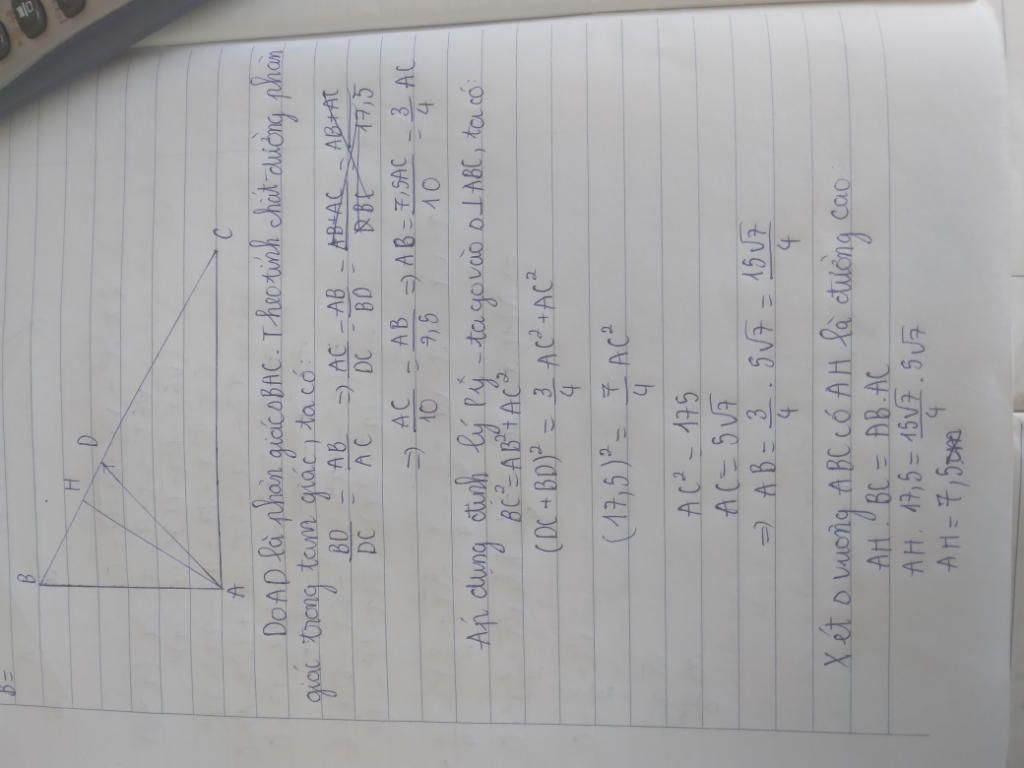 B=
B
H
D
A
C
Do AD là phân giác BAC. Theo tính chất đường phân
giác trong tam giác, ta có:
BD/DC = AB/AC => AC/DC = AB/BD = AB+AC/BC = AB+AC/17,5
=> AC/10 = AB/7,5 => AB = 7,5AC/10 = 3/4 AC
Áp dụng định lý Py-ta-go vào ⊥ABC, ta có:
BC² = AB² + AC²
(DC + BD)² = 3/4 AC² + AC²
(17,5)² = 7/4 AC²
AC² = 175
AC = 5√7
=> AB = 3/4 . 5√7 = 15√7/4
Xét △ vuông ABC có AH là đường cao:
AH. BC = AB. AC
AH. 17,5 = 15√7/4 . 5√7
AH = 7,5cm